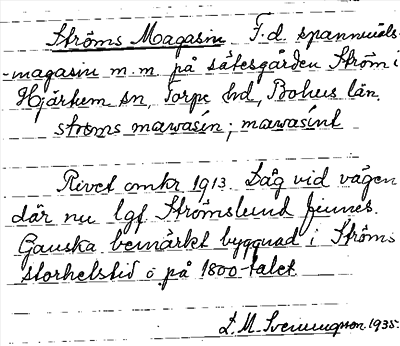 Ströms Magasin F.d. spannmåls-
-magasin m.m på sätesgården Ström i
Hjärtum sn, Torpe hd, Bohus län.
stroms mawasín; mawasínt
Rivet omkr 1913. Låg vid vägen
där nu lgf. Strömslund finnes.
Ganska bemärkt byggnad i Ströms
storhetstid ö på 1800-talet
L. M. Svenungsson 1935.